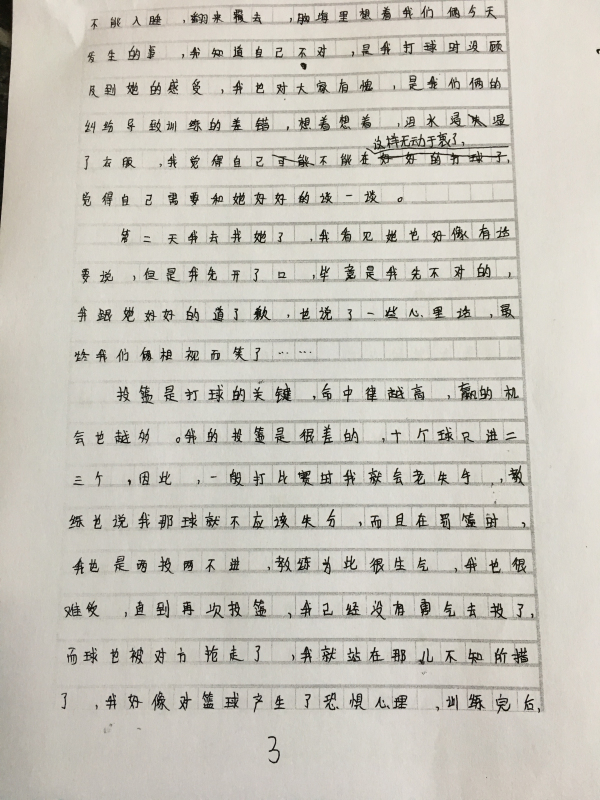 不能入睡，翻来覆去，脑海里想着我们俩今天
发生的事，我知道自己不对，是我打球时没顾
及到她的感受，我也对大家有愧，是我们俩的
纠纷导致训练的差错，想着想着，泪水浸湿
这样无动于衷了，
了衣服，我觉得自己可能不能在好好的打球了，
觉得自己需要和她好好的谈一谈。
第二天我去找她了，我看见她也好像有话
要说，但是我先开了口，毕竟是我先不对的，
我跟她好好的道了歉，也说了一些心里话，最
终我们俩相视而笑了……
投篮是打球的关键，命中律越高，赢的机
会也越多。我的投篮是很差的，十个球只进二
三个，因此，一般打比赛时我就会老失手，教
练也说我那球就不应该失分，而且在罚篮时，
我也是两投两不进，教练为此很生气，我也很
难受，直到再次投篮，我已经没有勇气去投了，
而球也被对方抢走了，我就站在那儿不知所措
了，我好像对篮球产生了恐惧心理，训练完后，
3